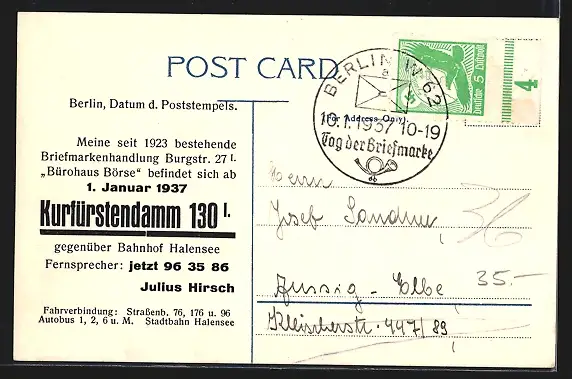 POST CARD
Berlin, Datum d. Poststempels.
Meine seit 1923 bestehende
Briefmarkenhandlung Burgstr. 27 I.
„Bürohaus Börse“ befindet sich ab
1. Januar 1937
Kurfürstendamm 130 I.
gegenüber Bahnhof Halensee
Fernsprecher: jetzt 96 35 86
Julius Hirsch
Fahrverbindung: Straßenb. 76, 176 u. 96
Autobus 1, 2, 6 u. M. Stadtbahn Halensee
BERLIN W 62
a
(For Address Only).
10.1.1937 10-19
Tag der Briefmarke
Deutsche 5 Luftpost
4
Herrn
Josef
36
Aussig - Elbe
35.-
447/89